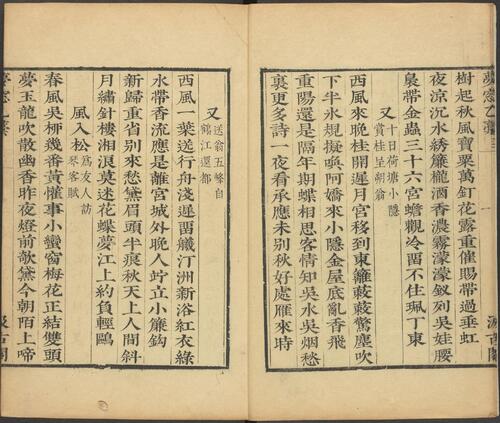 樹起秋風寶粟萬釘花露重催賜帶過垂虹
夜涼沉水繡簾櫳酒香濃霧濛濛釵列吳娃腰
褭帶金蟲三十六宮蟾觀冷畱不住珮丁東
又
十日荷塘小隱
賞桂呈朔翁
西風來晚桂開遲月宮移到東籬蔌蔌驚塵吹
下半氷規擬喚阿嬌來小隱金屋底亂香飛
重陽還是隔年期蝶相思客情知吳水吳烟愁
裏更多詩一夜看承應未別秋好處雁來時
又
送翁五峰自
鶴江還都
西風一葉送行舟淺遲畱艤汀洲新浴紅衣綠
水帶香流應是離宮城外晚人竚立小簾鈎
新歸重省別來愁黛眉頭半痕秋天上人間斜
月繡針樓湘浪莫迷花蝶夢江上約負輕鷗
風入松
為友人訪
琴客賦
春風吳柳幾番黃懽事小蠻窗梅花正結雙頭
夢玉龍吹散幽香昨夜燈前欹黛今朝陌上啼